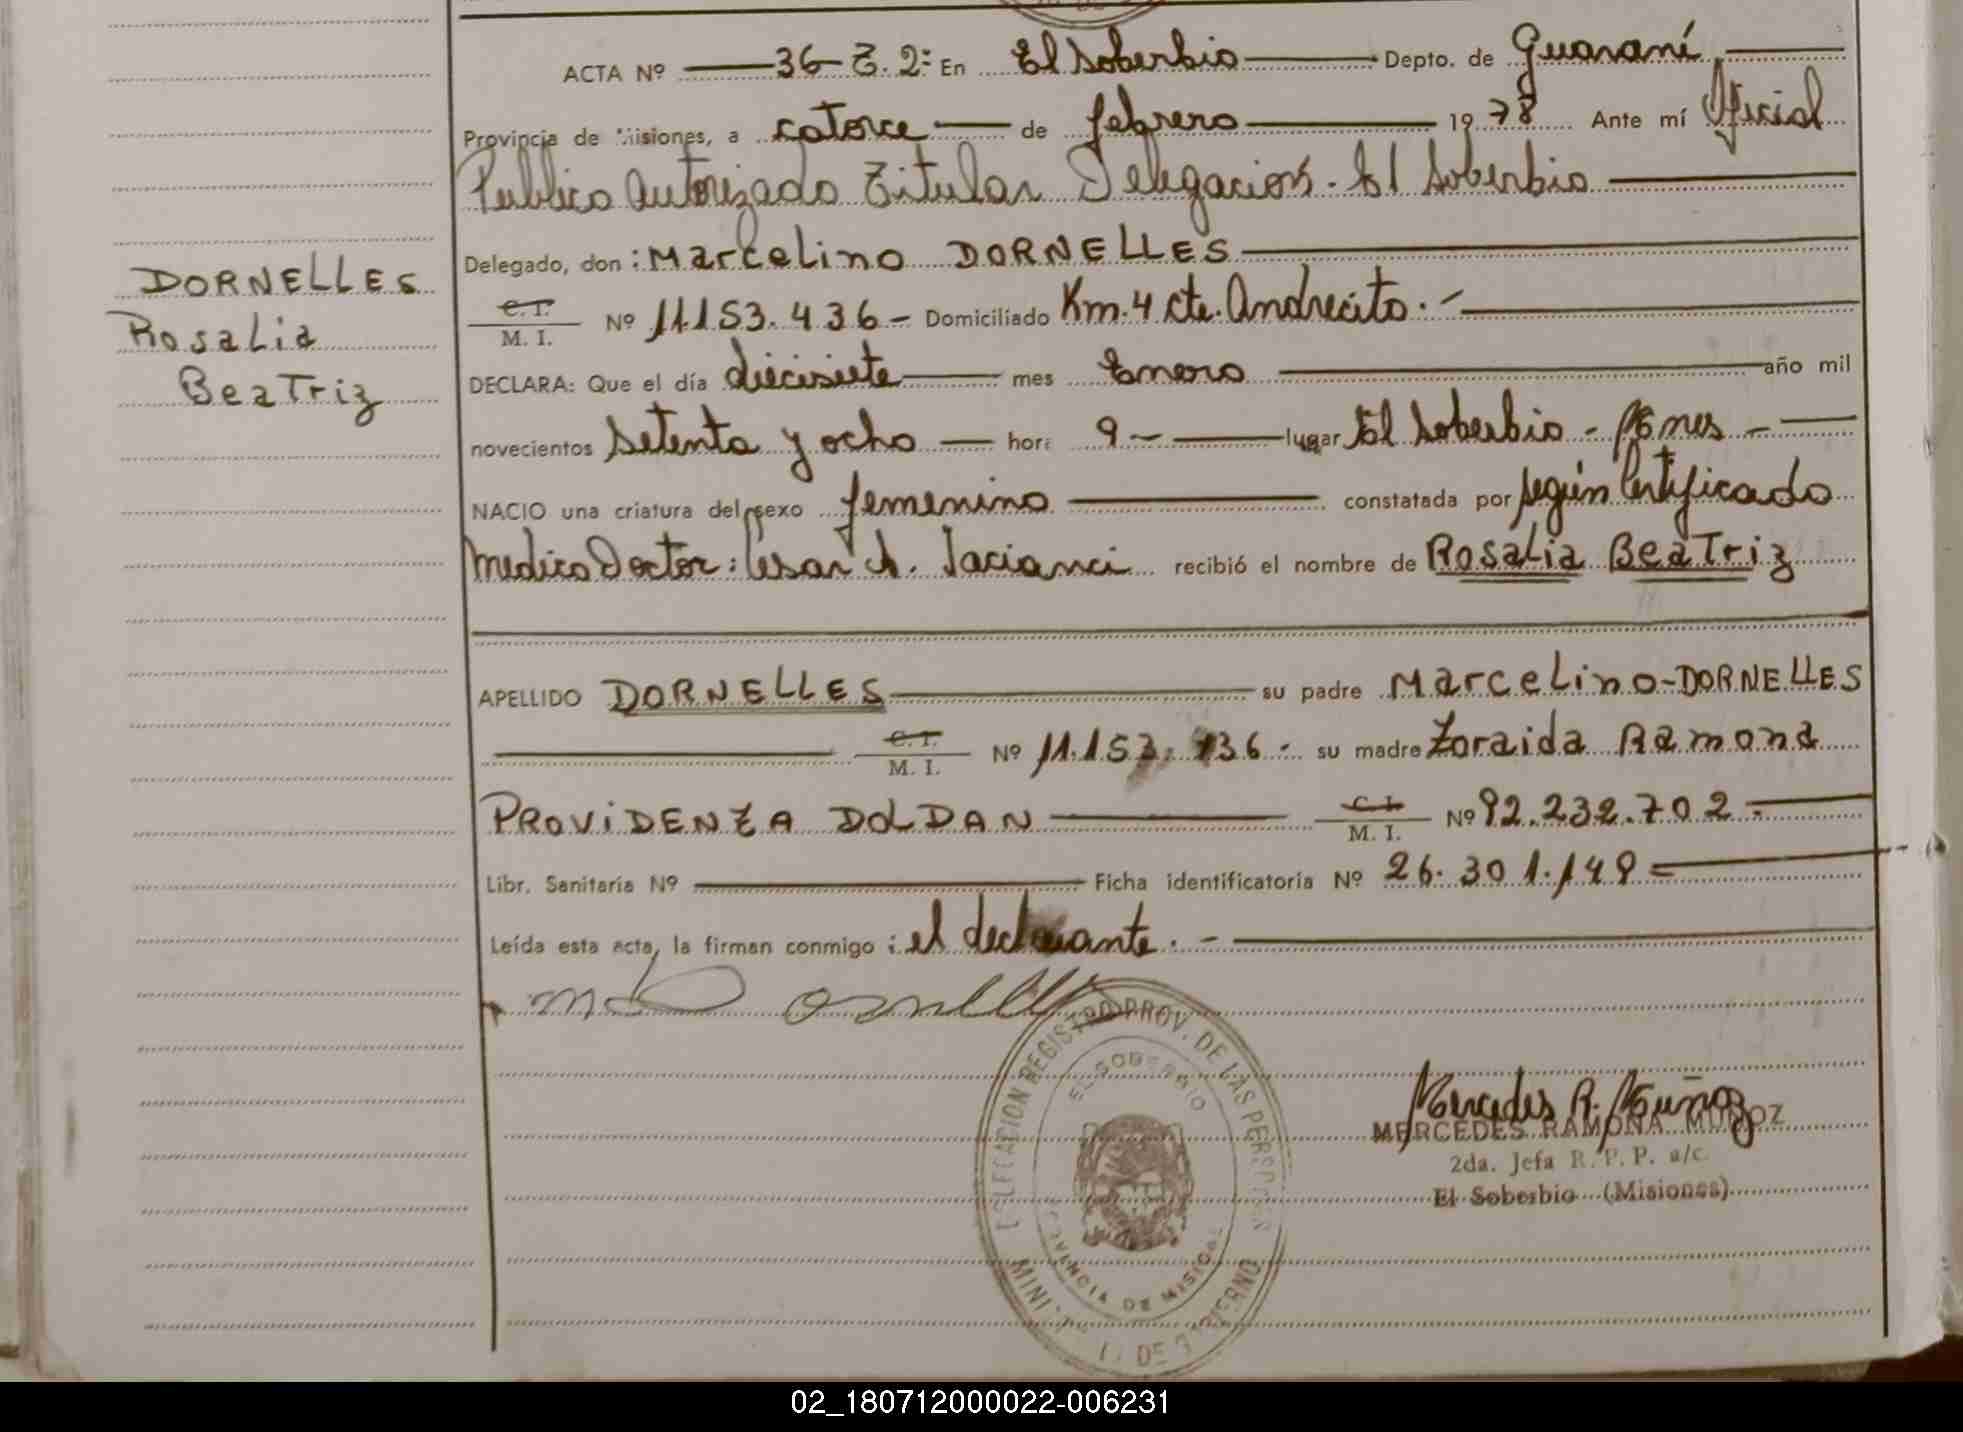 ACTA Nº 36 T. 2º En El Soberbio Depto. de Guaraní
Provincia de Misiones, a catorce de febrero 1978 Ante mí Oficial
Publico Autorizado Titular Delegación. El Soberbio
DORNELLES
Rosalia
Beatriz
Delegado, don: Marcelino DORNELLES
C.I. M. I. Nº 11.153.436 - Domiciliado Km. 4 Cte. Andrecito. -
DECLARA: Que el día diecisiete mes Enero año mil
novecientos setenta y ocho hora 9 - lugar El Soberbio - Mnes -
NACIO una criatura del sexo femenino constatada por según Certificado
Medico Doctor: Cesar A. recibió el nombre de Rosalia Beatriz
APELLIDO DORNELLES su padre Marcelino - DORNELLES
C.I. M. I. Nº 11.153.436 - su madre Zoraida Ramona
PROVIDENZA DOLDAN C.I. M. I. Nº 92.232.702 -
Libr. Sanitaria Nº Ficha identificatoria Nº 26.301.149 =
Leída esta acta, la firman conmigo: el declarante. -
DELEGACION REGISTRO PROV. DE LAS PERSONAS
EL SOBERBIO
PROVINCIA DE MISIONES
DE GOBIERNO
Mercedes R. Muñoz
MERCEDES RAMONA MUÑOZ
2da. Jefa R. P. P. a/c
El Soberbio (Misiones)
02_180712000022-006231